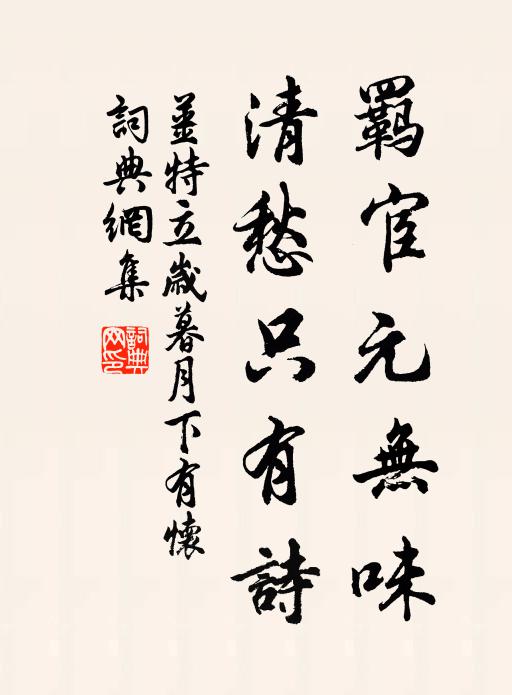 羈宦元無味
清愁只有詩
姜特立歲暮月下有懷
詞典網集
詞典網印